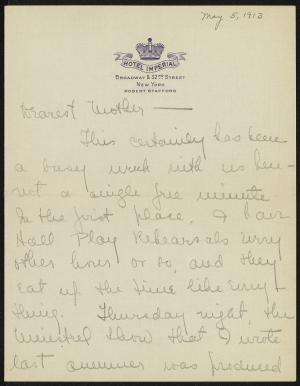 May 5, 1913
HOTEL IMPERIAL
BROADWAY & 32ND STREET
NEW YORK
ROBERT STAFFORD
Dearest Mother —
This certainly has been
a busy week with us here —
not a single free minute.
In the first place, I have
Hall Play Rehearsals every
other hour or so, and they
eat up the time like every-
thing. Thursday night, the
Minstrel Show that I wrote
last summer was produced